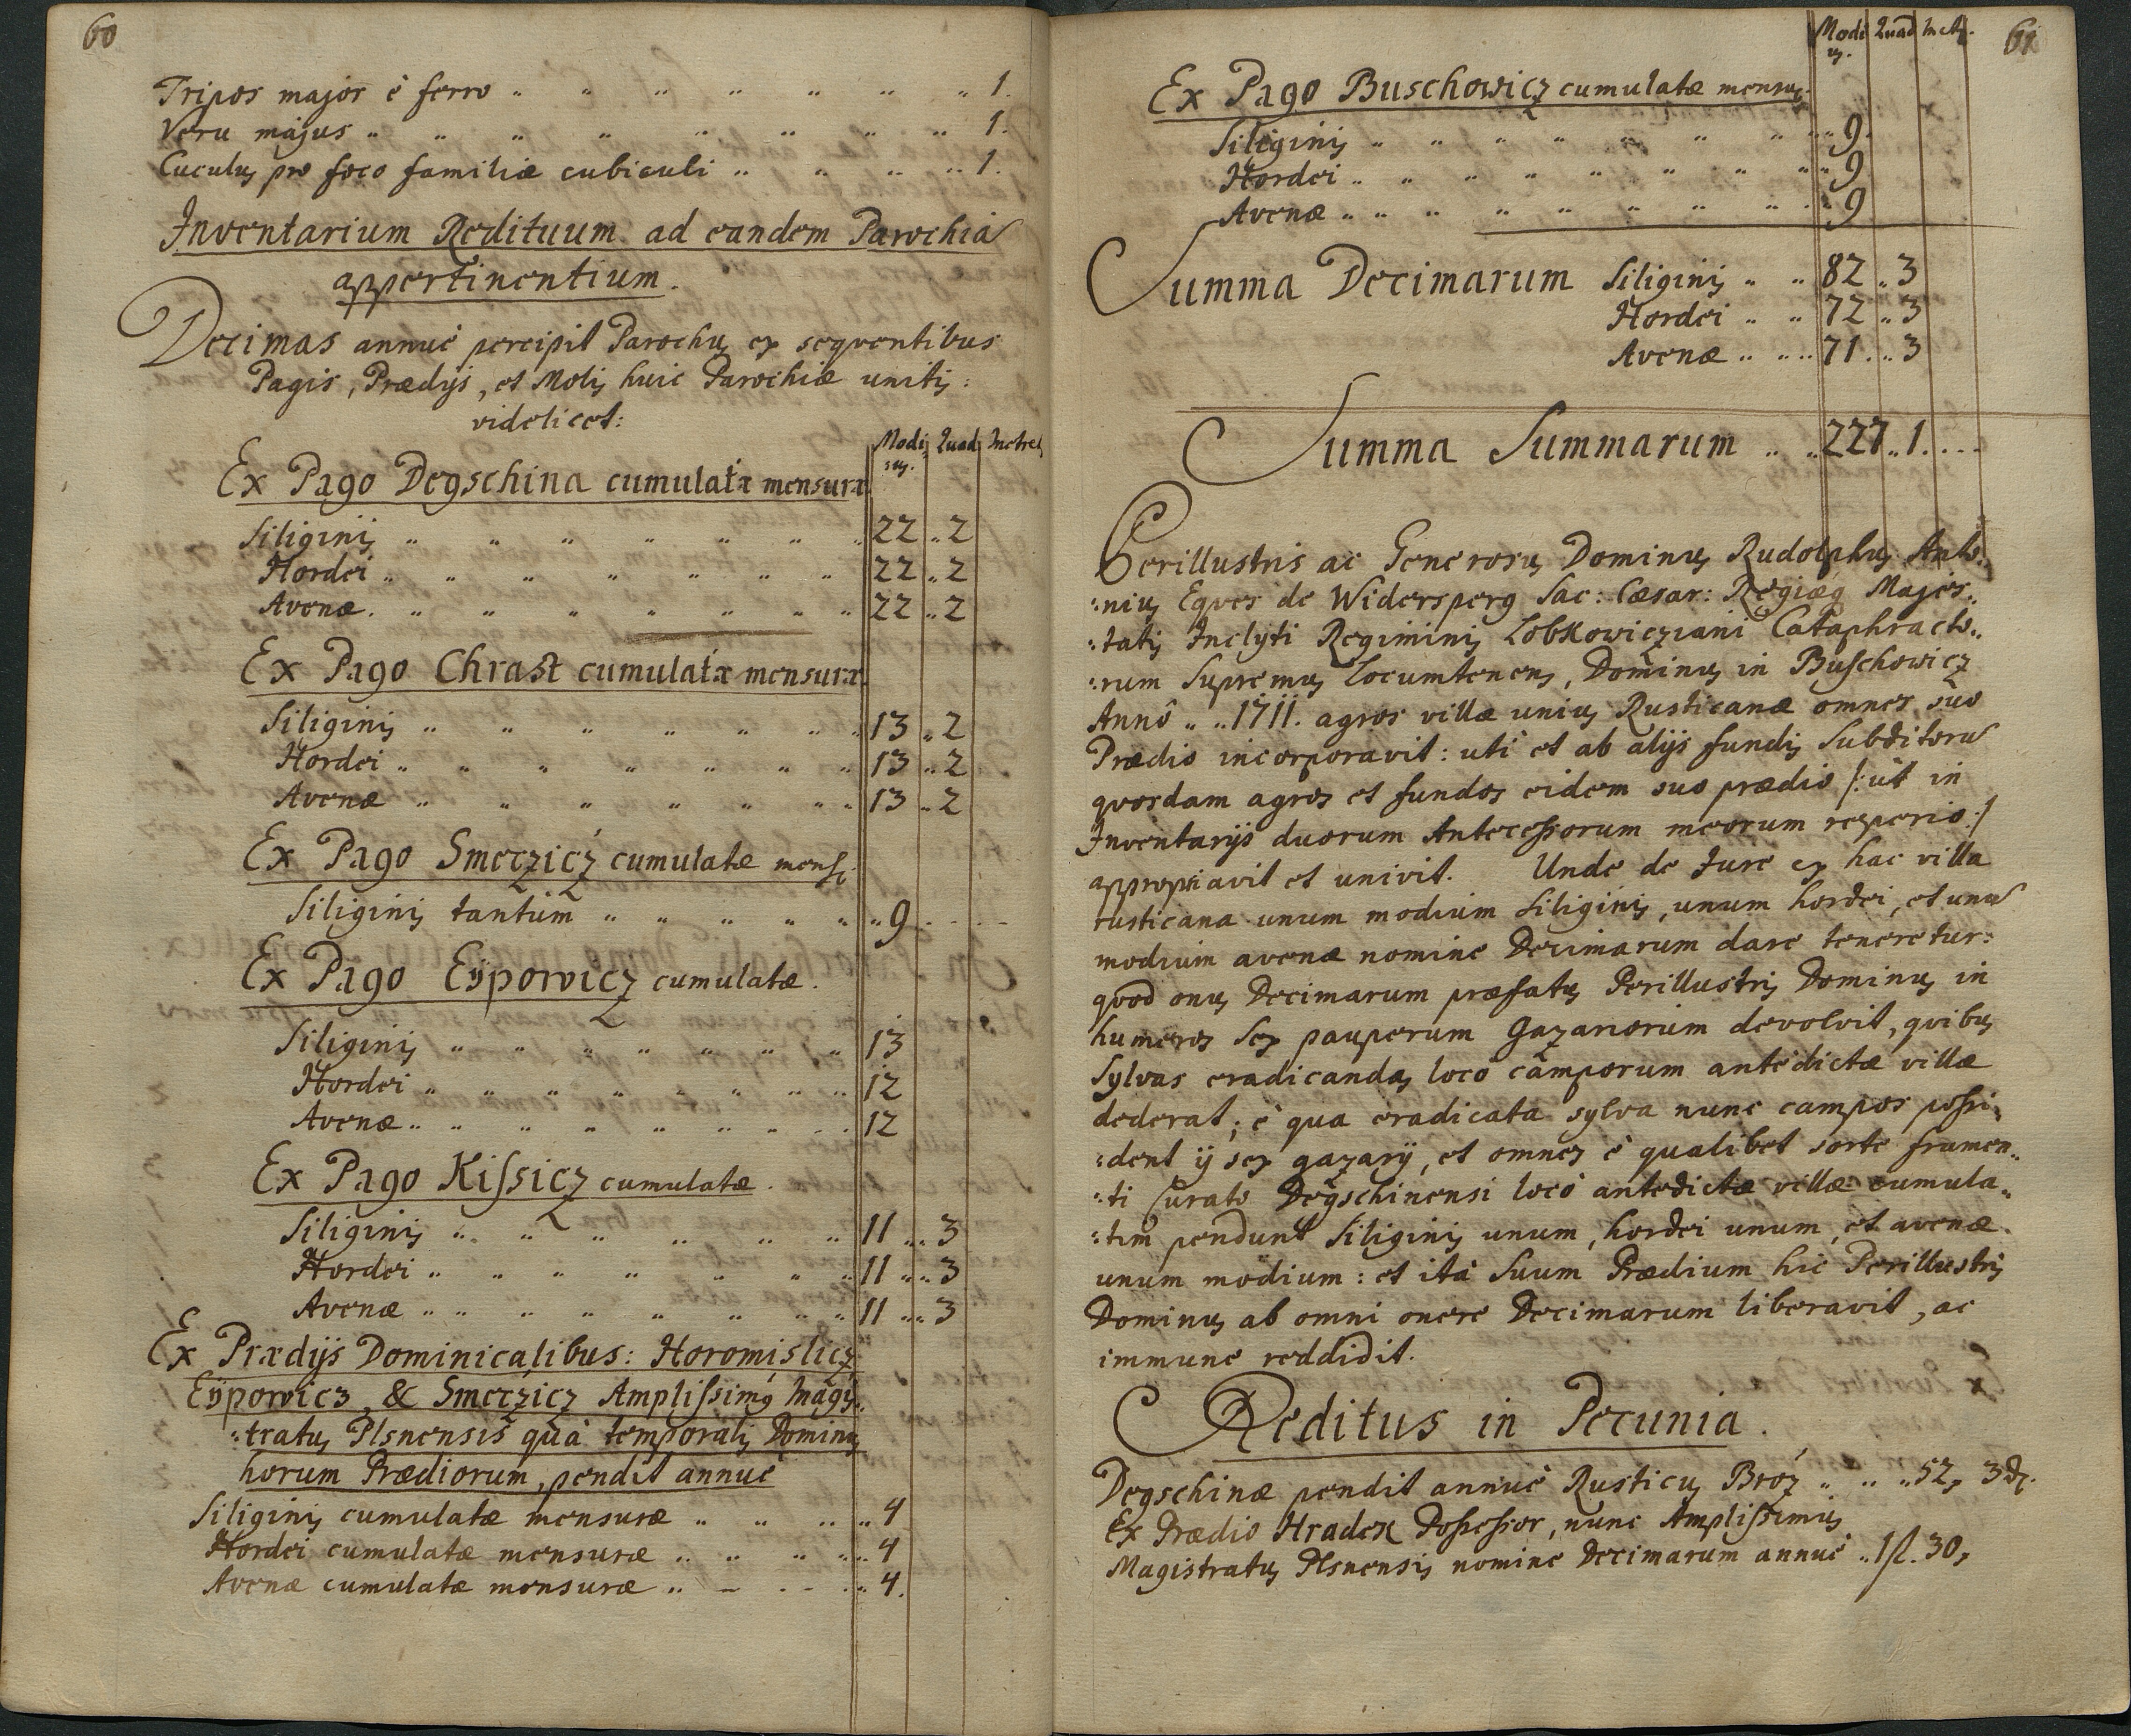 60
Tripos major è ferro " " " " " " " 1.
Veru majus " " " " " " " " 1.
Cuculus pro foco familiæ cubiculi " " " " 1.
Inventarium Redituum ad eandem Parochiã
appertinentium.
Decimas annuè percipit Parochus ex seqventibus
Pagis, Prædijs, et Molis huic Parochiæ unitis:
videlicet:
Modius. Quad Metret
Ex Pago Degschina cumulatæ mensuræ
Siliginis " " " " " " " 22 " 2
Hordei " " " " " " " 22 " 2
Avenæ. " " " " " " " 22 " 2
Ex Pago Chrast cumulatæ mensuræ
Siliginis " " " " " " " 13 " 2
Hordei " " " " " " " 13 " 2
Avenæ " " " " " " " 13 " 2
Ex Pago Smerzicz cumulatæ mens:
Siliginis tantùm " " " " " 9
Ex Pago Eÿpowicz cumulatæ.
Siliginis " " " " " " " 13
Hordei " " " " " " " 12
Avenæ " " " " " " " 12
Ex Pago Kissicz cumulatæ.
Siliginis " " " " " " 11 " 3
Hordei " " " " " " " 11 " 3
Avenæ " " " " " " " 11 " 3
Ex Prædijs Dominicalibus: Horomislicz
Eÿpowicz, & Smerzicz Amplissimus Magis:
:tratus Plsnensis quà temporalis Dominus
horum Prædiorum, pendit annuè
Siliginis cumulatæ mensuræ " " " " 4
Hordei cumulatæ mensuræ " " " " 4
Avenæ cumulatæ mensuræ " " " " 4.
61
Modius. Quad Met.
Ex Pago Buschowicz cumulatæ mensuræ
Siliginis " " " " " " " 9.
Hordei " " " " " " " " 9
Avenæ " " " " " " " " 9
Summa Decimarum Siliginis " " 82 " 3
Hordei " " 72 " 3
Avenæ " " 71 " 3
Summa Summarum " " 227 " 1.
Perillustris ac Generosus Dominus Rudolphus Anto:
:nius Eqves de Widersperg Sac: Cæsar: Regiæq Majes:
:tatis Inclyti Regiminis Lobkowicziani Cataphracto:
:rum Supremus Locumtenens, Dominus in Buschowicz
Annô 1711. agros villæ unius Rusticanæ omnes suo
Prædio incorporavit: uti et ab alijs fundis Subditorũ
qvosdam agros et fundos eidem suo prædio /: ut in
Inventarijs duorum Antecessorum meorum reperio :/
appropriavit et univit. Unde de Jure ex hac villa
rusticana unum modium siliginis, unum hordei, et unũ
modium avenæ nomine Decimarum dare teneretur:
qvod onus Decimarum præfatus Perillustris Dominus in
humeros sex pauperum Gazariorum devolvit, qvibus
Sylvas eradicandas locô camporum antedictæ villæ
dederat; è qua eradicata sylva nunc campos possi:
:dent ij sex gazarij, et omnes è qualibet sorte frumen:
:ti Curato Degschinensi locô antedictæ villæ cumula:
:tim pendunt Siliginis unum, hordei unum, et avenæ
unum modium: et ità Suum Prædium hic Perillustris
Dominus ab omni onere Decimarum liberavit, ac
immune reddidit.
Reditus in Pecunia.
Degschinæ pendit annuè Rusticus Bróz " " " 52, 3 d.
Ex Prædio Hradek Possessor, nunc Amplissimus
Magistratus Plsnensis nomine Decimarum annuè " 1 fl. 30,